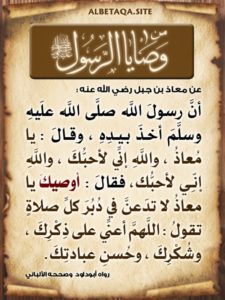 ALBETAQA.SITE
من
وصايا الرسول ﷺ
عن معاذ بن جبل رضي الله عنه :
أنَّ رسولَ اللَّهِ صلَّى اللَّه عليهِ
وسلَّمَ أخذَ بيدِهِ ، وقالَ : يا
مُعاذُ ، واللَّهِ إنِّي لأحبُّكَ ، واللَّهِ
إنِّي لأحبُّك، فقالَ : أوصيكَ يا
معاذُ لا تدَعنَّ في دُبُرِ كلِّ صلاةٍ
تقولُ : اللَّهمَّ أعنِّي على ذِكْرِكَ ،
وشُكْرِكَ ، وحُسنِ عبادتِكَ.
رواه أبوداود وصححه الألباني